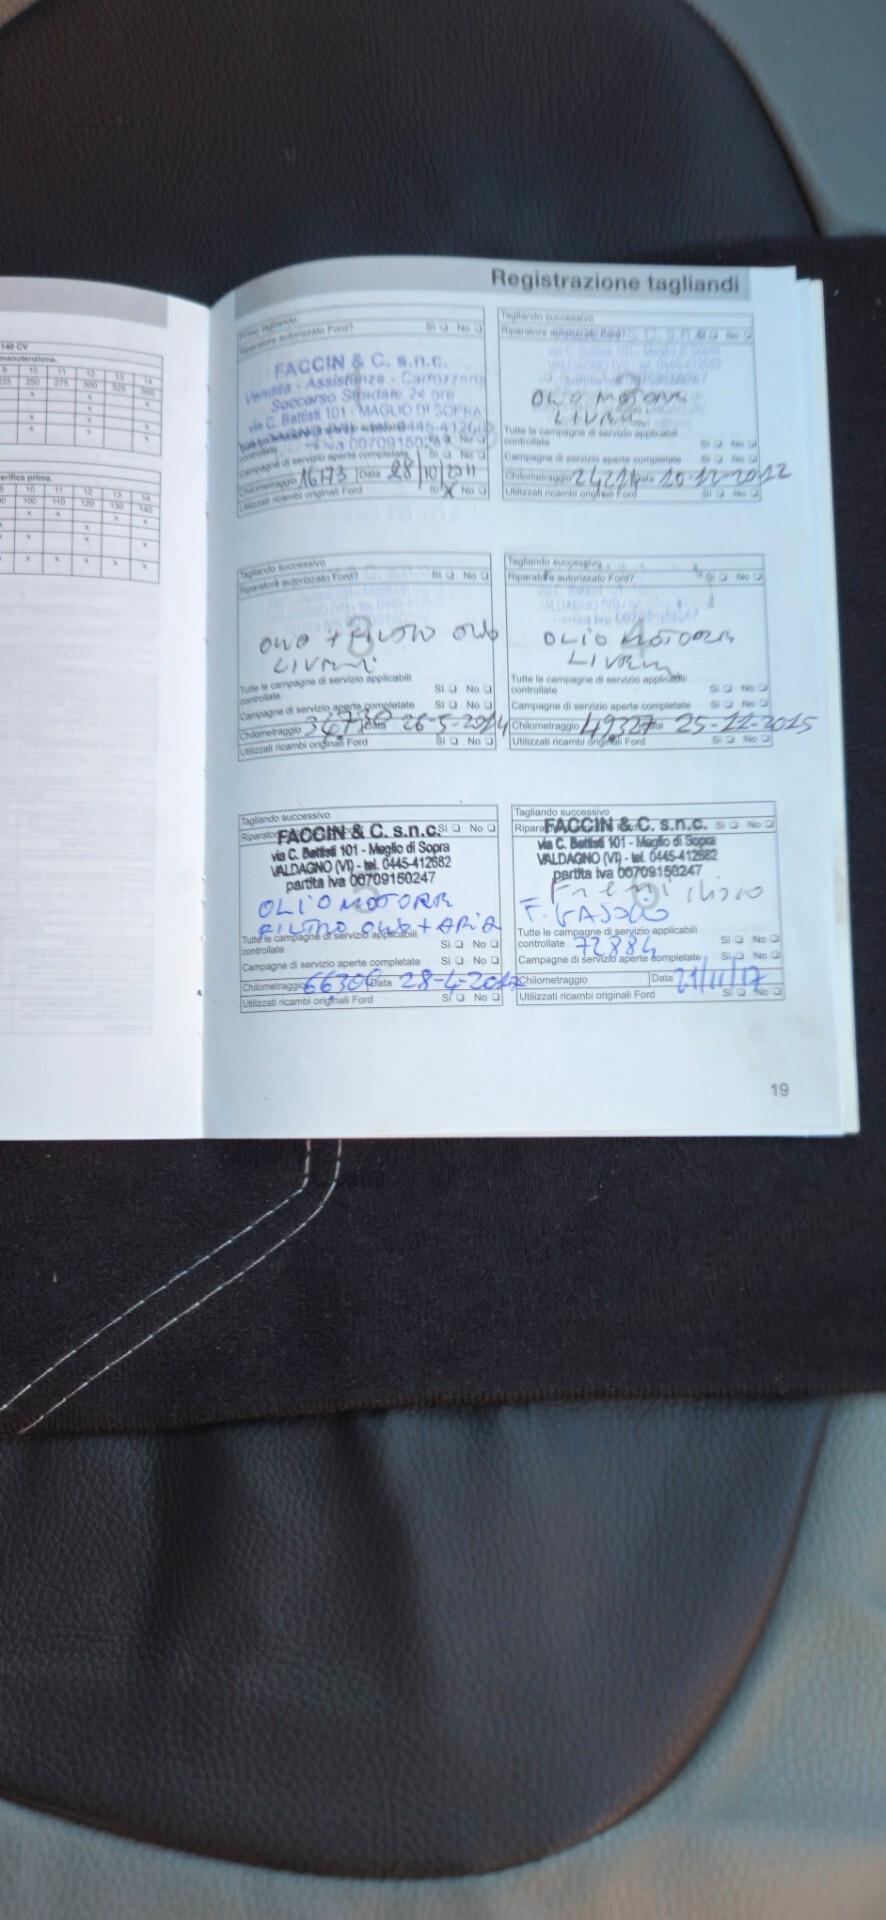 Registrazione tagliandi
140 CV
manutenzione.
9 10 11 12 13 14
225 250 275 300 325 350
x x x
x x
x x
x x
verifica prima.
9 10 11 12 13 14
100 110 120 130 140
x x x x
x
x x
x x x x x
tagliando
Riparatore autorizzato Ford? Sì No
FACCIN & C. s.n.c.
Vendita - Assistenza - Carrozzeria
Soccorso Stradale 24 ore
via C. Battisti 101 - MAGLIO DI SOPRA
controllate Sì No
Campagne di servizio aperte completate Sì No
Chilometraggio 16173 Data 28/10/2011
Utilizzati ricambi originali Ford Sì X No
Tagliando successivo
Riparatore autorizzato Ford? Sì No
OLIO MOTORE
LIVELLI
Tutte le campagne di servizio applicabili
controllate Sì No
Campagne di servizio aperte completate Sì No
Chilometraggio Data 10-12-2012
Utilizzati ricambi originali Ford Sì No
Tagliando successivo
Riparatore autorizzato Ford? Sì No
OLIO + FILTRO OLIO
LIVELLI
Tutte le campagne di servizio applicabili
controllate Sì No
Campagne di servizio aperte completate Sì No
Chilometraggio 36730 Data 26-5-2014
Utilizzati ricambi originali Ford Sì No
Tagliando successivo
Riparatore autorizzato Ford? Sì No
VALDAGNO (VI)
OLIO MOTORE
LIVELLI
Tutte le campagne di servizio applicabili
controllate Sì No
Campagne di servizio aperte completate Sì No
Chilometraggio 49327 Data 25-11-2015
Utilizzati ricambi originali Ford Sì No
Tagliando successivo
Sì No
FACCIN & C. s.n.c.
via C. Battisti 101 - Maglio di Sopra
VALDAGNO (VI) - tel. 0445-412682
partita iva 00709150247
OLIO MOTORE
FILTRO OLIO + ARIA
Tutte le campagne di servizio applicabili
controllate Sì No
Campagne di servizio aperte completate Sì No
Chilometraggio 66306 Data 28-4-2017
Utilizzati ricambi originali Ford Sì No
Tagliando successivo
Sì No
FACCIN & C. s.n.c.
via C. Battisti 101 - Maglio di Sopra
VALDAGNO (VI) - tel. 0445-412682
partita iva 00709150247
Freni
F. GASOLIO
Tutte le campagne di servizio applicabili
controllate 72884 Sì No
Campagne di servizio aperte completate Sì No
Chilometraggio Data 21/11/17
Utilizzati ricambi originali Ford Sì No
19